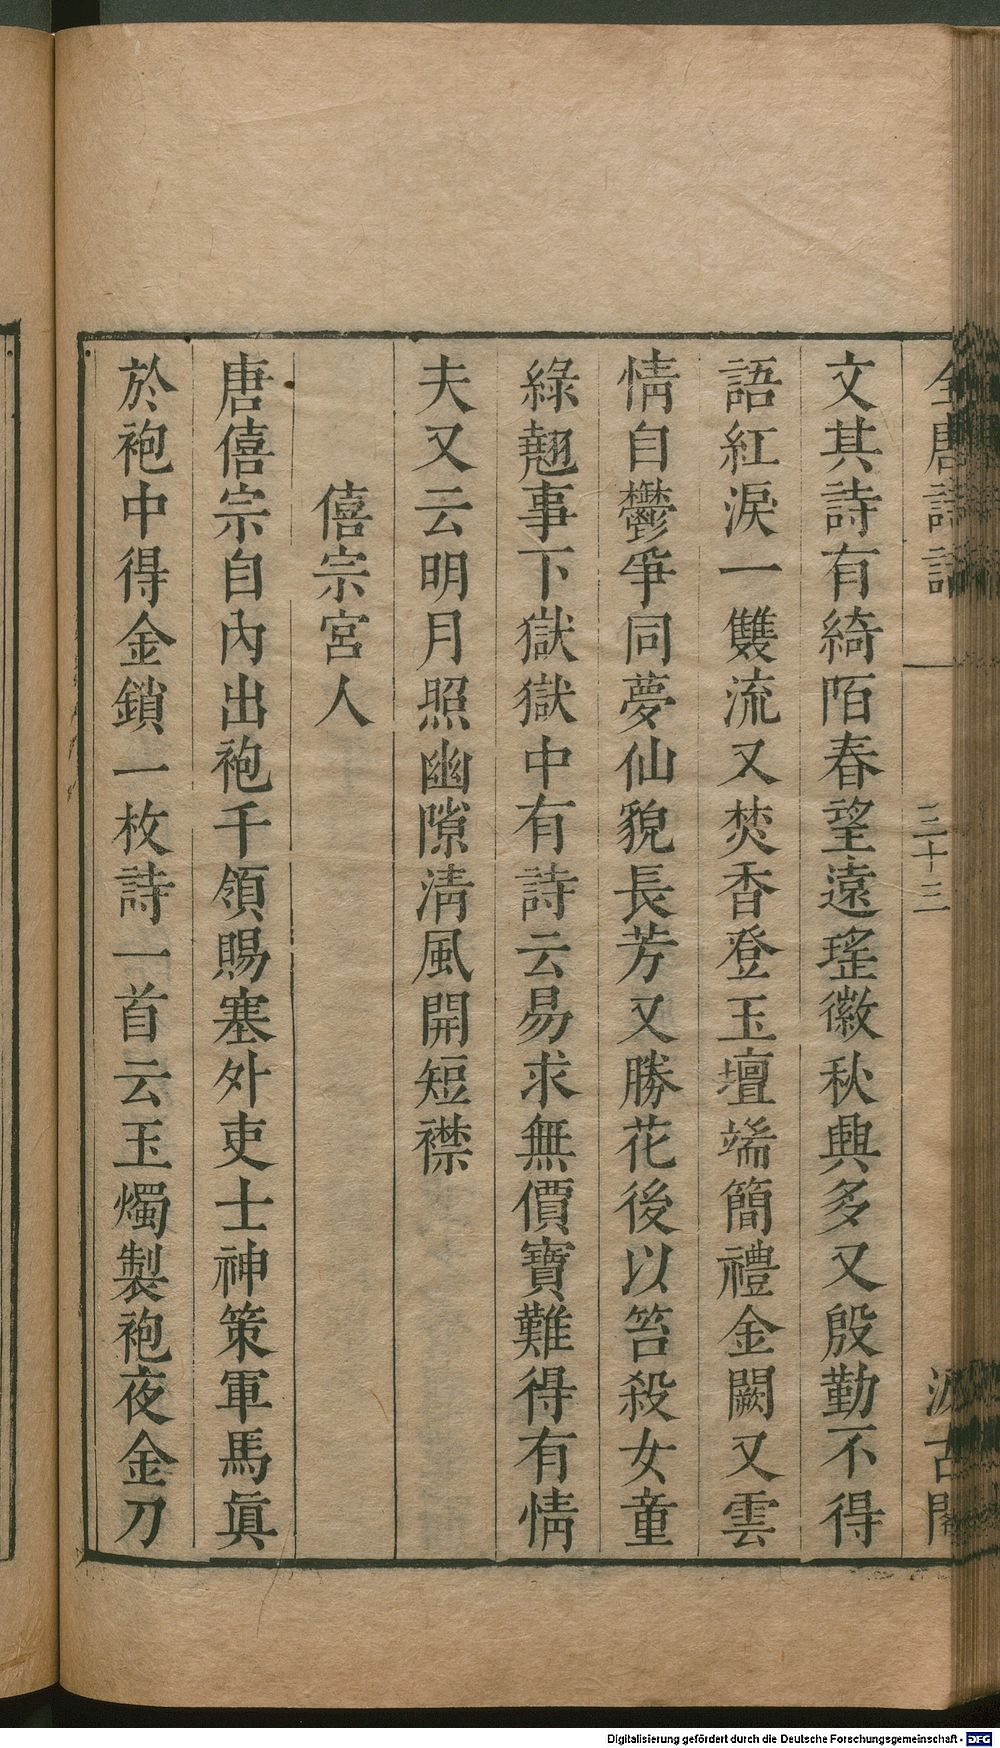 全唐詩話
三十三
汲古閣
文其詩有綺陌春望遠瑤徽秋興多又殷勤不得
語紅淚一雙流又焚香登玉壇端簡禮金闕又雲
情自鬱爭同夢仙貌長芳又勝花後以笞殺女童
綠翹事下獄獄中有詩云易求無價寶難得有情
夫又云明月照幽隙清風開短襟
僖宗宮人
唐僖宗自內出袍千領賜塞外吏士神策軍馬眞
於袍中得金鎖一枚詩一首云玉燭製袍夜金刀
Digitalisierung gefördert durch die Deutsche Forschungsgemeinschaft - DFG